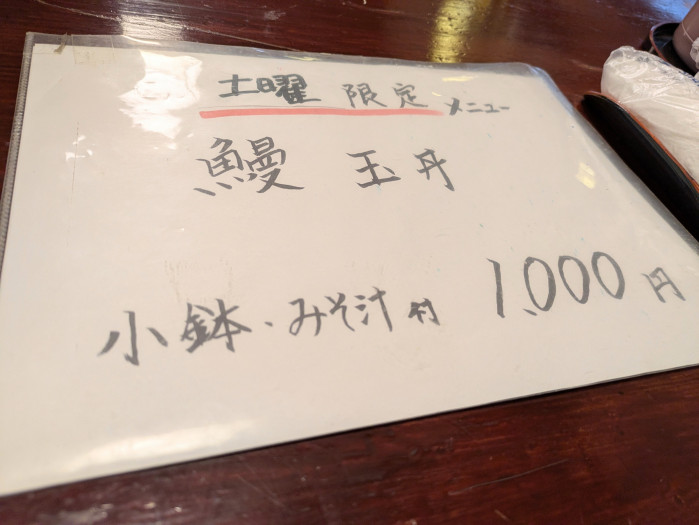 土曜 限定 メニュー
鰻 玉丼
小鉢・みそ汁 付 1,000 円